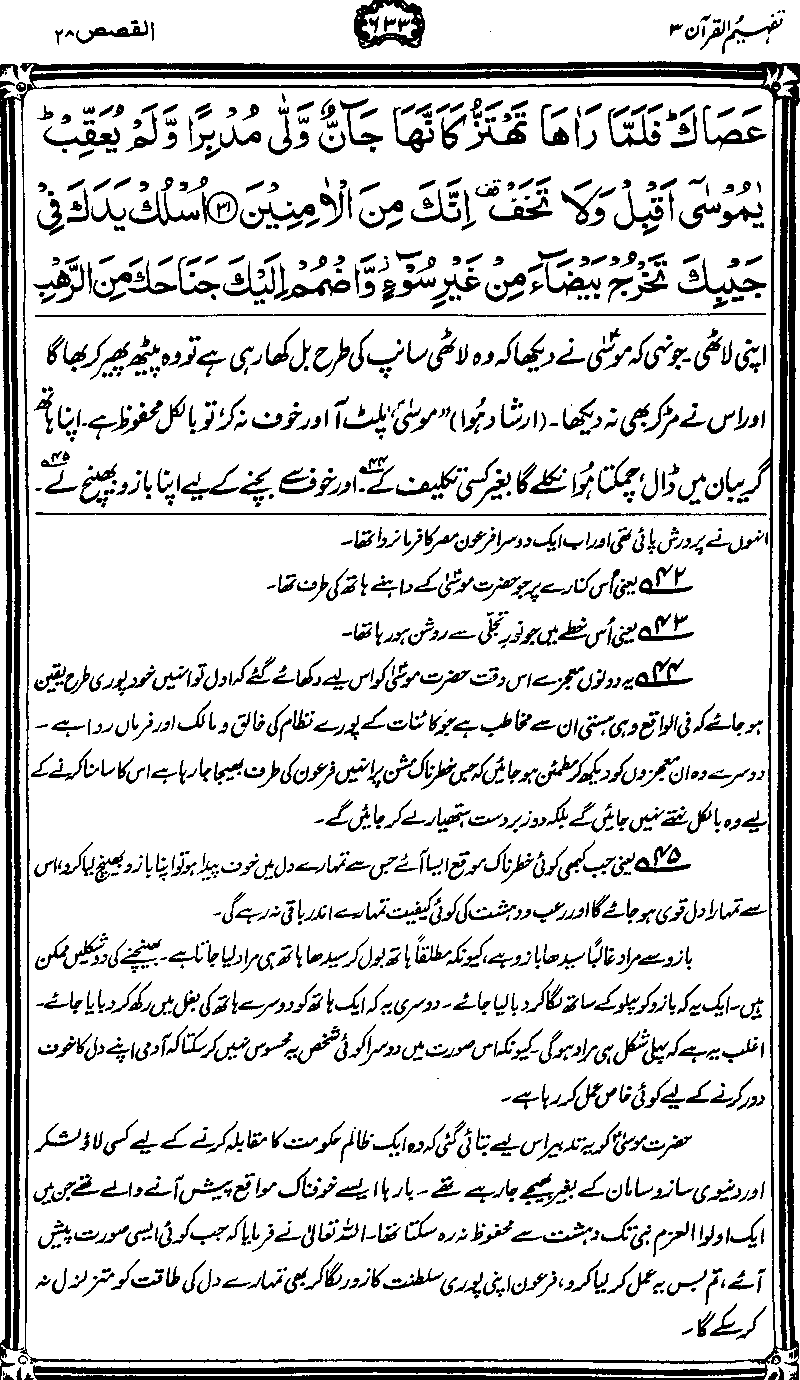 تفہیم القرآن ۳
۶۳۳
القصص ۲۸
عَصَاكَ ؕ فَلَمَّا رَاٰهَا تَهْتَزُّ كَاَنَّهَا جَآنٌّ وَّلّٰى مُدْبِرًا وَّلَمْ يُعَقِّبْ ؕ
يٰمُوْسٰۤى اَقْبِلْ وَلَا تَخَفْ ۫ اِنَّكَ مِنَ الْاٰمِنِيْنَ ﴿۳۱﴾ اُسْلُكْ يَدَكَ فِيْ
جَيْبِكَ تَخْرُجْ بَيْضَآءَ مِنْ غَيْرِ سُوْٓءٍ ؗ وَّاضْمُمْ اِلَيْكَ جَنَاحَكَ مِنَ الرَّهْبِ
اپنی لاٹھی۔ جونہی کہ موسیٰؑ نے دیکھا کہ وہ لاٹھی سانپ کی طرح بل کھا رہی ہے تو وہ پیٹھ پھیر کر بھاگا
اور اس نے مڑ کر بھی نہ دیکھا۔ (ارشاد ہُوا) ”موسیٰؑ، پلٹ آ اور خوف نہ کر، تو بالکل محفوظ ہے۔ اپنا ہاتھ
گریبان میں ڈال، چمکتا ہُوا نکلے گا بغیر کسی تکلیف کے۴۴۔ اور خوف سے بچنے کے لیے اپنا بازو بھینچ لے۴۵۔
انہوں نے پرورش پائی تھی اور اب ایک دوسرا فرعون مصر کا فرمانروا تھا۔
۴۲؎ یعنی اُس کنارے پر جو حضرت موسیٰؑ کے داہنے ہاتھ کی طرف تھا۔
۴۳؎ یعنی اُس خطے میں جو نورِ تجلّی سے روشن ہو رہا تھا۔
۴۴؎ یہ دونوں معجزے اس وقت حضرت موسیٰؑ کو اس لیے دکھائے گئے کہ اول تو انہیں خود پوری طرح یقین
ہو جائے کہ فی الواقع وہی ہستی ان سے مخاطب ہے جو کائنات کے پورے نظام کی خالق و مالک اور فرماں روا ہے۔
دوسرے وہ ان معجزوں کو دیکھ کر مطمئن ہو جائیں کہ جس خطرناک مشن پر انہیں فرعون کی طرف بھیجا جا رہا ہے اس کا سامنا کرنے کے
لیے وہ بالکل نہتے نہیں جائیں گے بلکہ دو زبردست ہتھیار لے کر جائیں گے۔
۴۵؎ یعنی جب کبھی کوئی خطرناک موقع ایسا آئے جس سے تمہارے دل میں خوف پیدا ہو تو اپنا بازو بھینچ لیا کرو، اس
سے تمہارا دل قوی ہو جائے گا اور رعب و دہشت کی کوئی کیفیت تمہارے اندر باقی نہ رہے گی۔
بازو سے مراد غالباً سیدھا بازو ہے، کیونکہ مطلقاً ہاتھ بول کر سیدھا ہاتھ ہی مراد لیا جاتا ہے۔ بھینچنے کی دو شکلیں ممکن
ہیں۔ ایک یہ کہ بازو کو پہلو کے ساتھ لگا کر دبا لیا جائے۔ دوسری یہ کہ ایک ہاتھ کو دوسرے ہاتھ کی بغل میں رکھ کر دبایا جائے۔
اغلب یہ ہے کہ پہلی شکل ہی مراد ہوگی۔ کیونکہ اس صورت میں دوسرا کوئی شخص یہ محسوس نہیں کر سکتا کہ آدمی اپنے دل کا خوف
دور کرنے کے لیے کوئی خاص عمل کر رہا ہے۔
حضرت موسیٰؑ کو یہ تدبیر اس لیے بتائی گئی کہ وہ ایک ظالم حکومت کا مقابلہ کرنے کے لیے کسی لاؤ لشکر
اور دنیوی ساز و سامان کے بغیر بھیجے جا رہے تھے۔ بارہا ایسے خوفناک مواقع پیش آنے والے تھے جن میں
ایک اولوا العزم نبی تک دہشت سے محفوظ نہ رہ سکتا تھا۔ اللہ تعالیٰ نے فرمایا کہ جب کوئی ایسی صورت پیش
آئے، تم بس یہ عمل کر لیا کرو، فرعون اپنی پوری سلطنت کا زور لگا کر بھی تمہارے دل کی طاقت کو متزلزل نہ
کر سکے گا۔